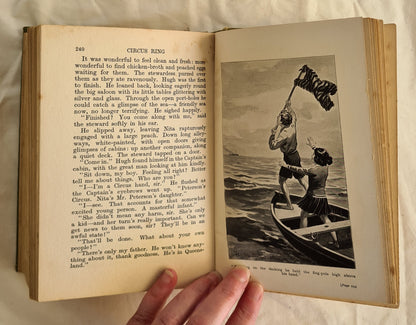 240 CIRCUS RING
It was wonderful to feel clean and fresh: more
wonderful to find chicken-broth and poached eggs
waiting for them. The stewardess, purred over
them as they ate ravenously. Hugh was the first
to finish. He loaned back, looking eagerly round
the big saloon with its little tables glittering with
silver and glass. Through the open port-holes he
could catch a glimpse of the sea—a friendly sea
now, no longer terrifying. He sighed happily.
"Finished? You come along with me," said
the steward softly in his ear.
He slipped away, leaving Nita rapturously
engaged with a third poached egg. Down long alley-
ways, white-painted, with open doors giving
glimpses of cabins: up another companion, along
a quiet deck. The steward tapped on a door.
"Come in." Hugh found himself in the Captain's
cabin, with the great man looking at him kindly.
"Sit down, my boy. Feeling all right? Better
tell me about things. Who are you?"
"I—I'm a Circus hand, sir." He flushed as
the Captain's eyebrows went up. "Peterson's
Circus. Nita's Mr. Peterson's daughter."
"I—see. That accounts for that somewhat
excited young person. A masterful infant."
"She didn't mean any harm, sir. She's only
a kid—and her turn's really important. Can we
get news to them soon, sir? They'll be in an
awful state!"
"That'll be done. What about your own
people?"
"There's only my father. He won't know any-
thing about it, thank goodness. He's in Queens-
land."
on the decking he held the flag-pole high above
his head.
[Page